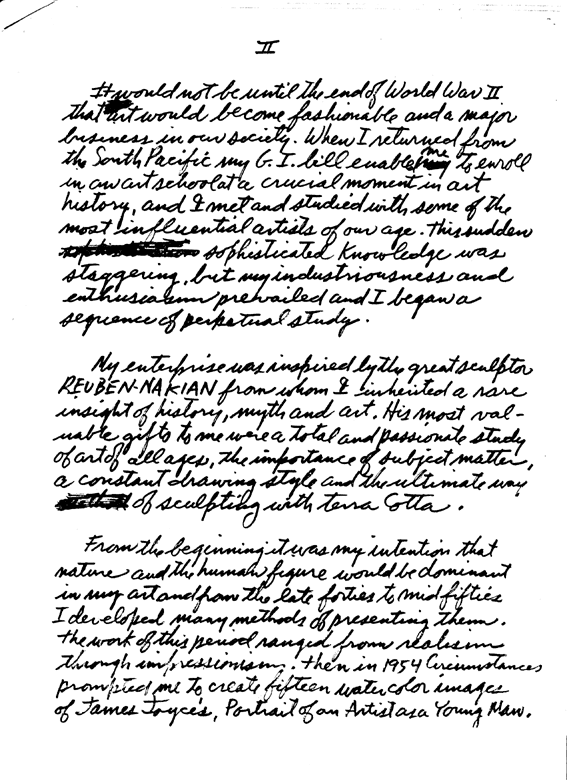 II
It would not be until the end of World War II
that art would become fashionable and a major
business in our society. When I returned from
the South Pacific my G.I. bill enabled me to enroll
in an art school at a crucial moment in art
history, and I met and studied with some of the
most influential artists of our age. This sudden
sophisticated knowledge was
staggering, but my industriousness and
enthusiasm prevailed and I began a
sequence of perpetual study.
My enterprise was inspired by the great sculptor
REUBEN-NAKIAN from whom I inherited a rare
insight of history, myth and art. His most val-
uable gifts to me were a total and passionate study
of art of all ages, the importance of subject matter,
a constant drawing style and the ultimate way
of sculpting with terra Cotta.
From the beginning it was my intention that
nature and the human figure would be dominant
in my art and from the late forties to mid fifties
I developed many methods of presenting them.
the work of this period ranged from realism
through impressionism. then in 1954 Circumstances
prompted me to create fifteen watercolor images
of James Joyce's, Portrait of an Artist as a Young Man.